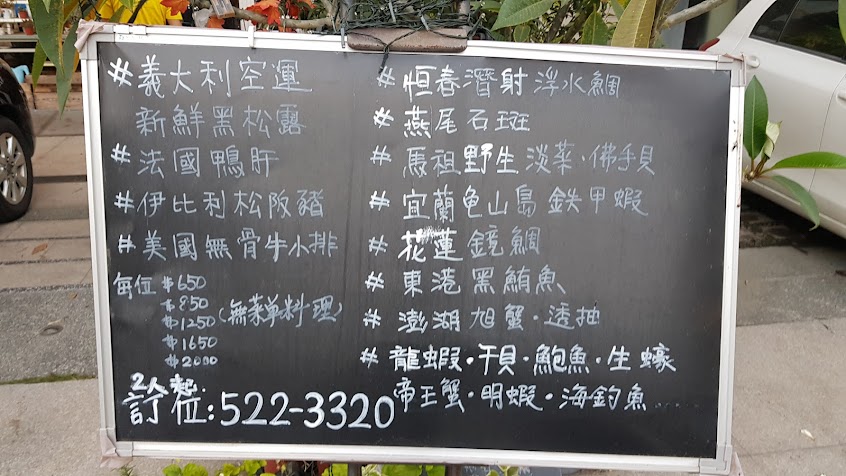 #義大利空運
新鮮黑松露
#法國鴨肝
#伊比利松阪豬
#美國無骨牛小排
每位 $650
$850
$1250 (無菜單料理)
$1650
$2000
2人起.
訂位:522-3320
#恒春潛射浮水鯛
#燕尾石斑
#馬祖野生淡菜·佛手貝
#宜蘭龟山島鉄甲蝦
#花蓮鏡鯛
#東港黑鮪魚
#澎湖旭蟹·透抽
#龍蝦·干貝·鮑魚·生蠔
帝王蟹·明蝦·海釣魚......